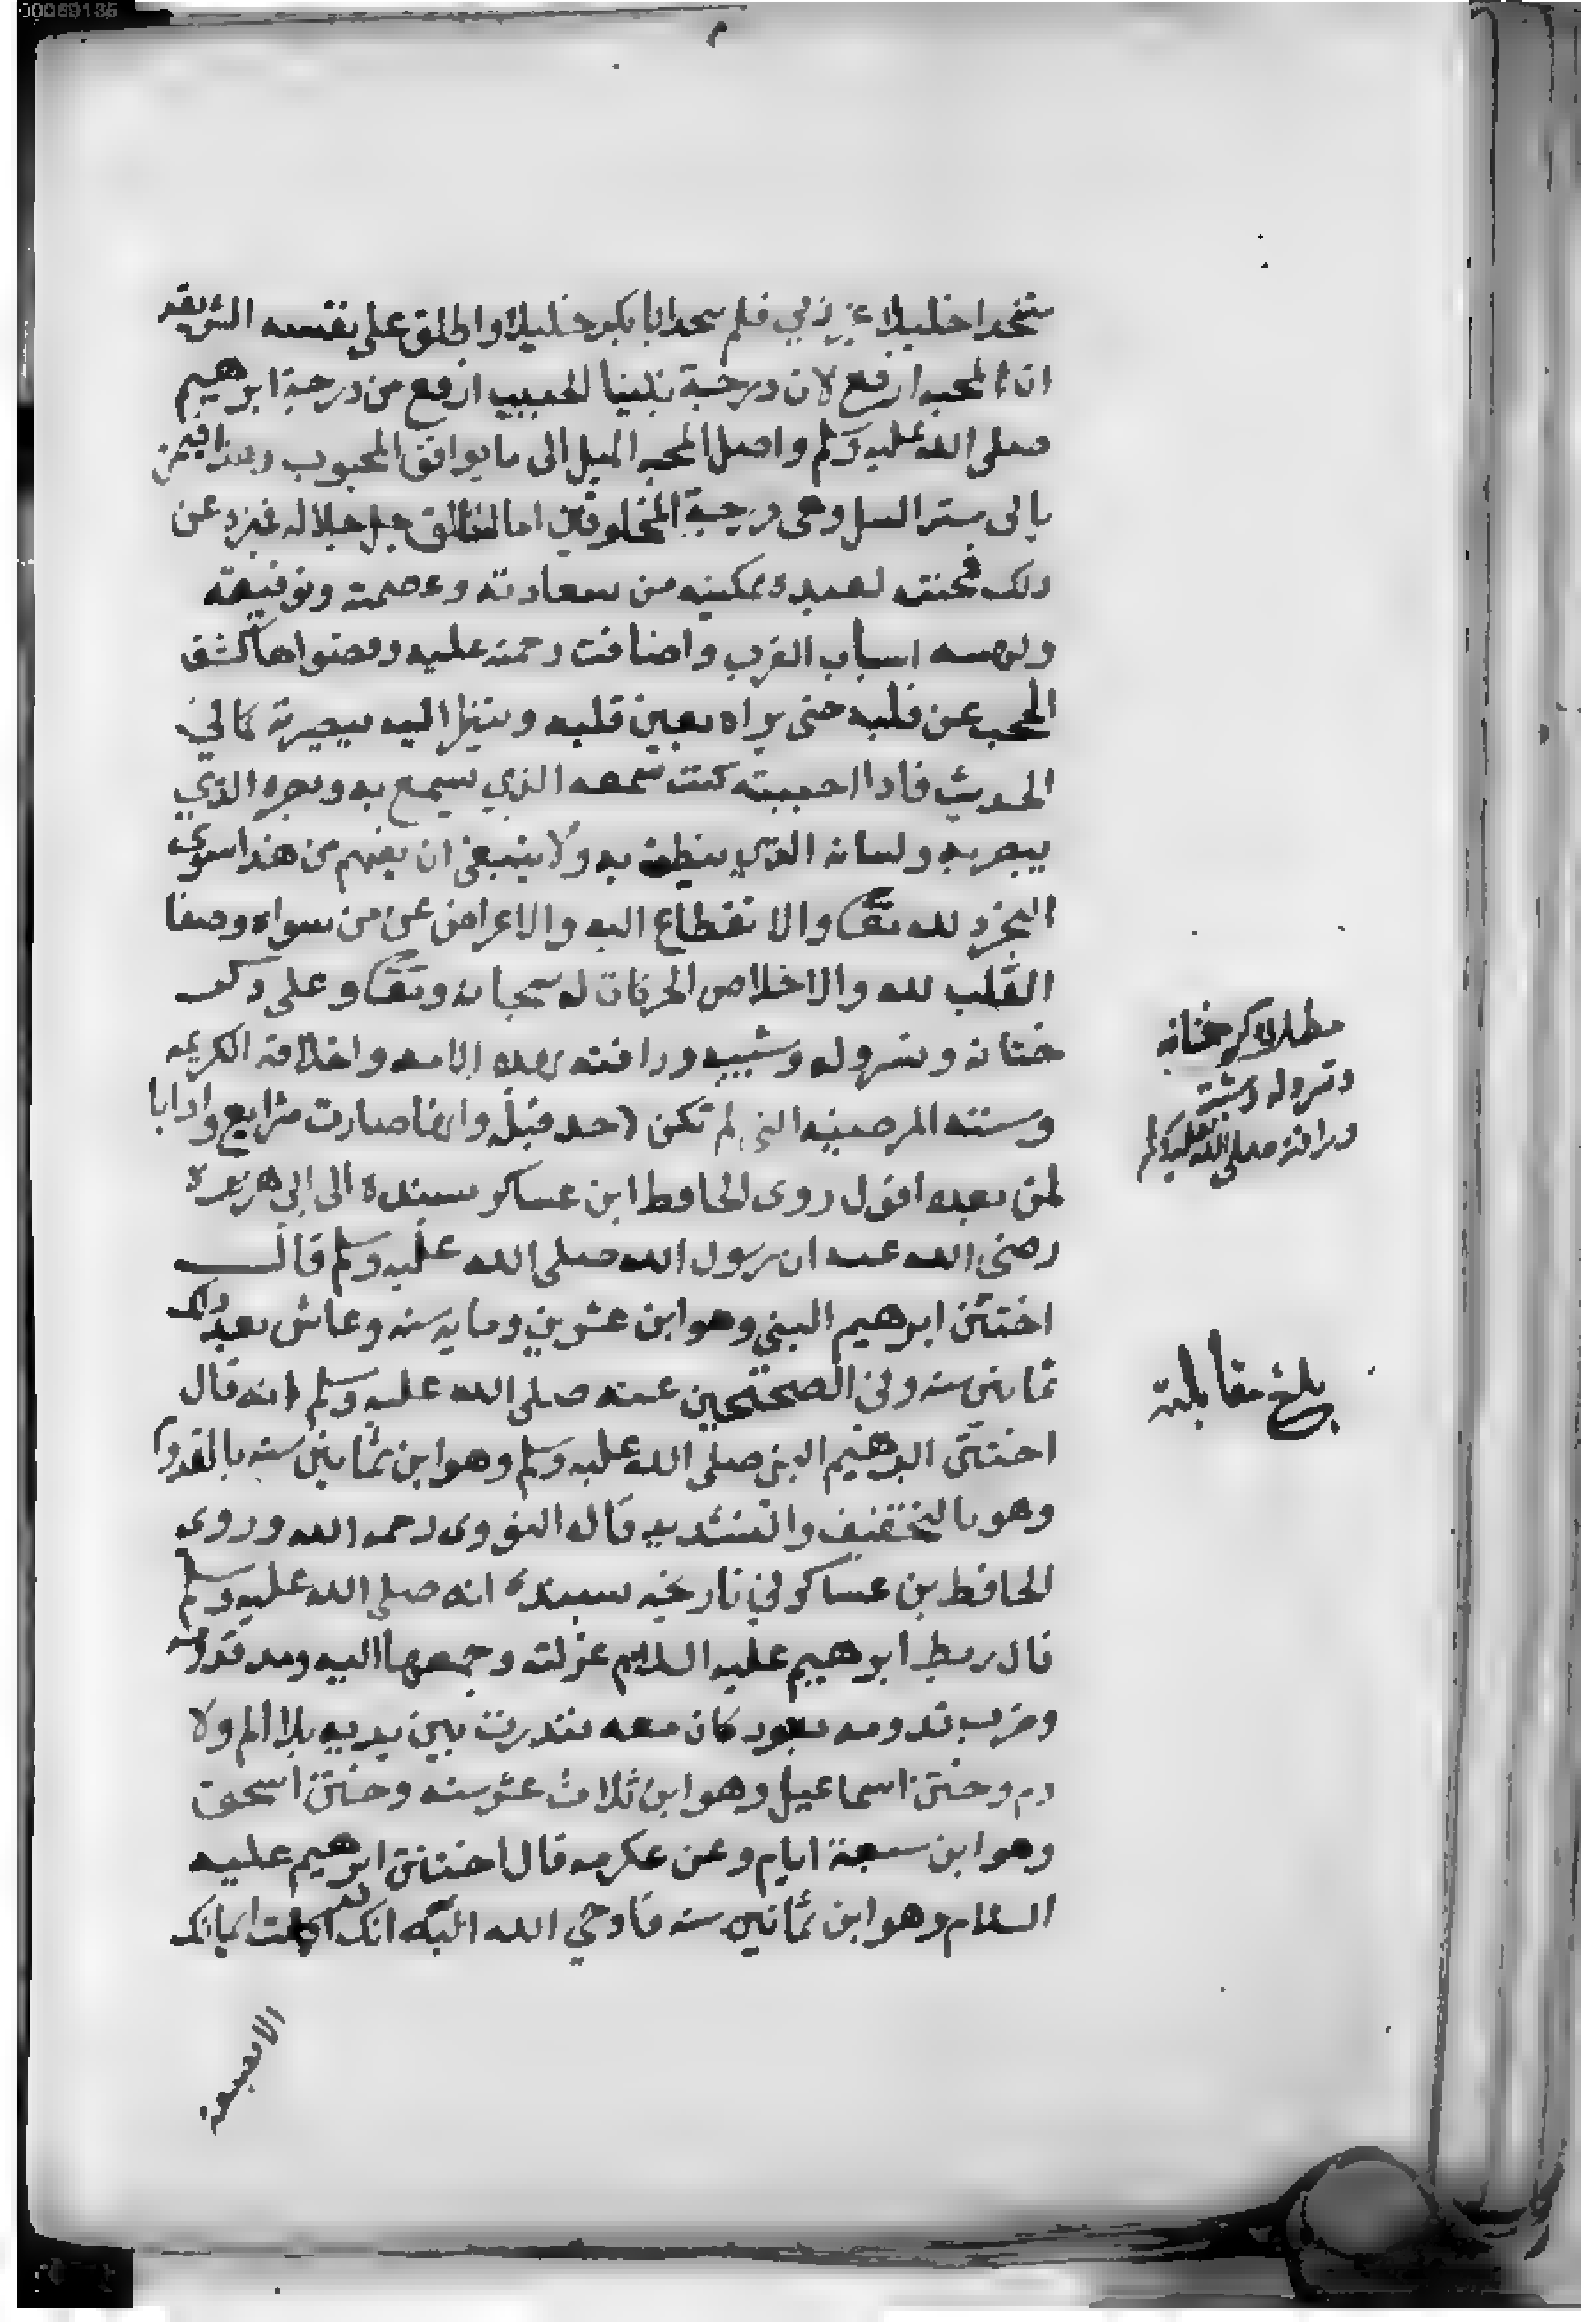 متخدا خليلا غير ربي فلم يتخد ابا بكر خليلا واطلق على نفسه الشريفه
ان المحبه ارفع لان درجة نبينا الحبيب ارفع من درجة ابرهيم
صلى الله عليه وسلم واصل المحبه الميل الى ما يوافق المحبوب وهذا فيمن
وهى درجة المخلوقين اما الخالق جل جلاله فنزه عن
دلك فمحبته لعبده تمكينه من سعادته وعصمته وتوفيقه
اسباب القرب واضافت رحمته عليه وقصواها كشف
الحجب عن قلبه حتى يراه بعين قلبه وينظر اليه ببصيرته كما في
الحديث فادا احببته كنت سمعه الذي يسمع به وبصره الذي
يبصر به ولسانه الذي ينطق به ولا ينبغي ان يفهم من هذا سوى
التجرد لله تعالى والانقطاع اليه والاعراض عن من سواه وصفا
القلب لله والاخلاص الحركات له سبحانه وتعالى وعلى دكر
ختانه وتسروله وشيبه ورافته بهده الامه واخلاقه الكريمه
وسننه المرضيه التي لم تكن لاحد قبله وانها صارت شرايع وادابا
لمن بعده اقول روى الحافظ ابن عساكر بسنده الى ابي هريره
رضى الله عنه ان رسول الله صلى الله عليه وسلم قال
اختتن ابرهيم النبي وهو ابن عشرين ومايه سنه وعاش بعد دلك
ثمانين سنه وفي الصحيحين عنه صلى الله عليه وسلم انه قال
اختتن ابرهيم النبي صلى الله عليه وسلم وهو ابن ثمانين سنه بالقدوم
وهو بالتخفيف والتشديد قاله النووى رحمه الله وروى
الحافظ بن عساكر في تاريخه بسنده انه صلى الله عليه وسلم
قال ربط ابرهيم عليه السلام غرلته وجمعها اليه ومد قدومه
وضرب قدومه بعود كان معه فندرت بين يديه بلا الم ولا
دم وختن اسماعيل وهو ابن ثلاث عشر سنه وختن اسحق
وهو ابن سبعة ايام وعن عكرمه قال اختتن ابرهيم عليه
السلام وهو ابن ثمانين سنه فاوحي الله اليه انك قد اكملت ايمانك
الا بضعة
مطلب دكر ختانه
وتسروله وشيبته
ورافته صلى الله عليه وسلم
بلغ مقابلة